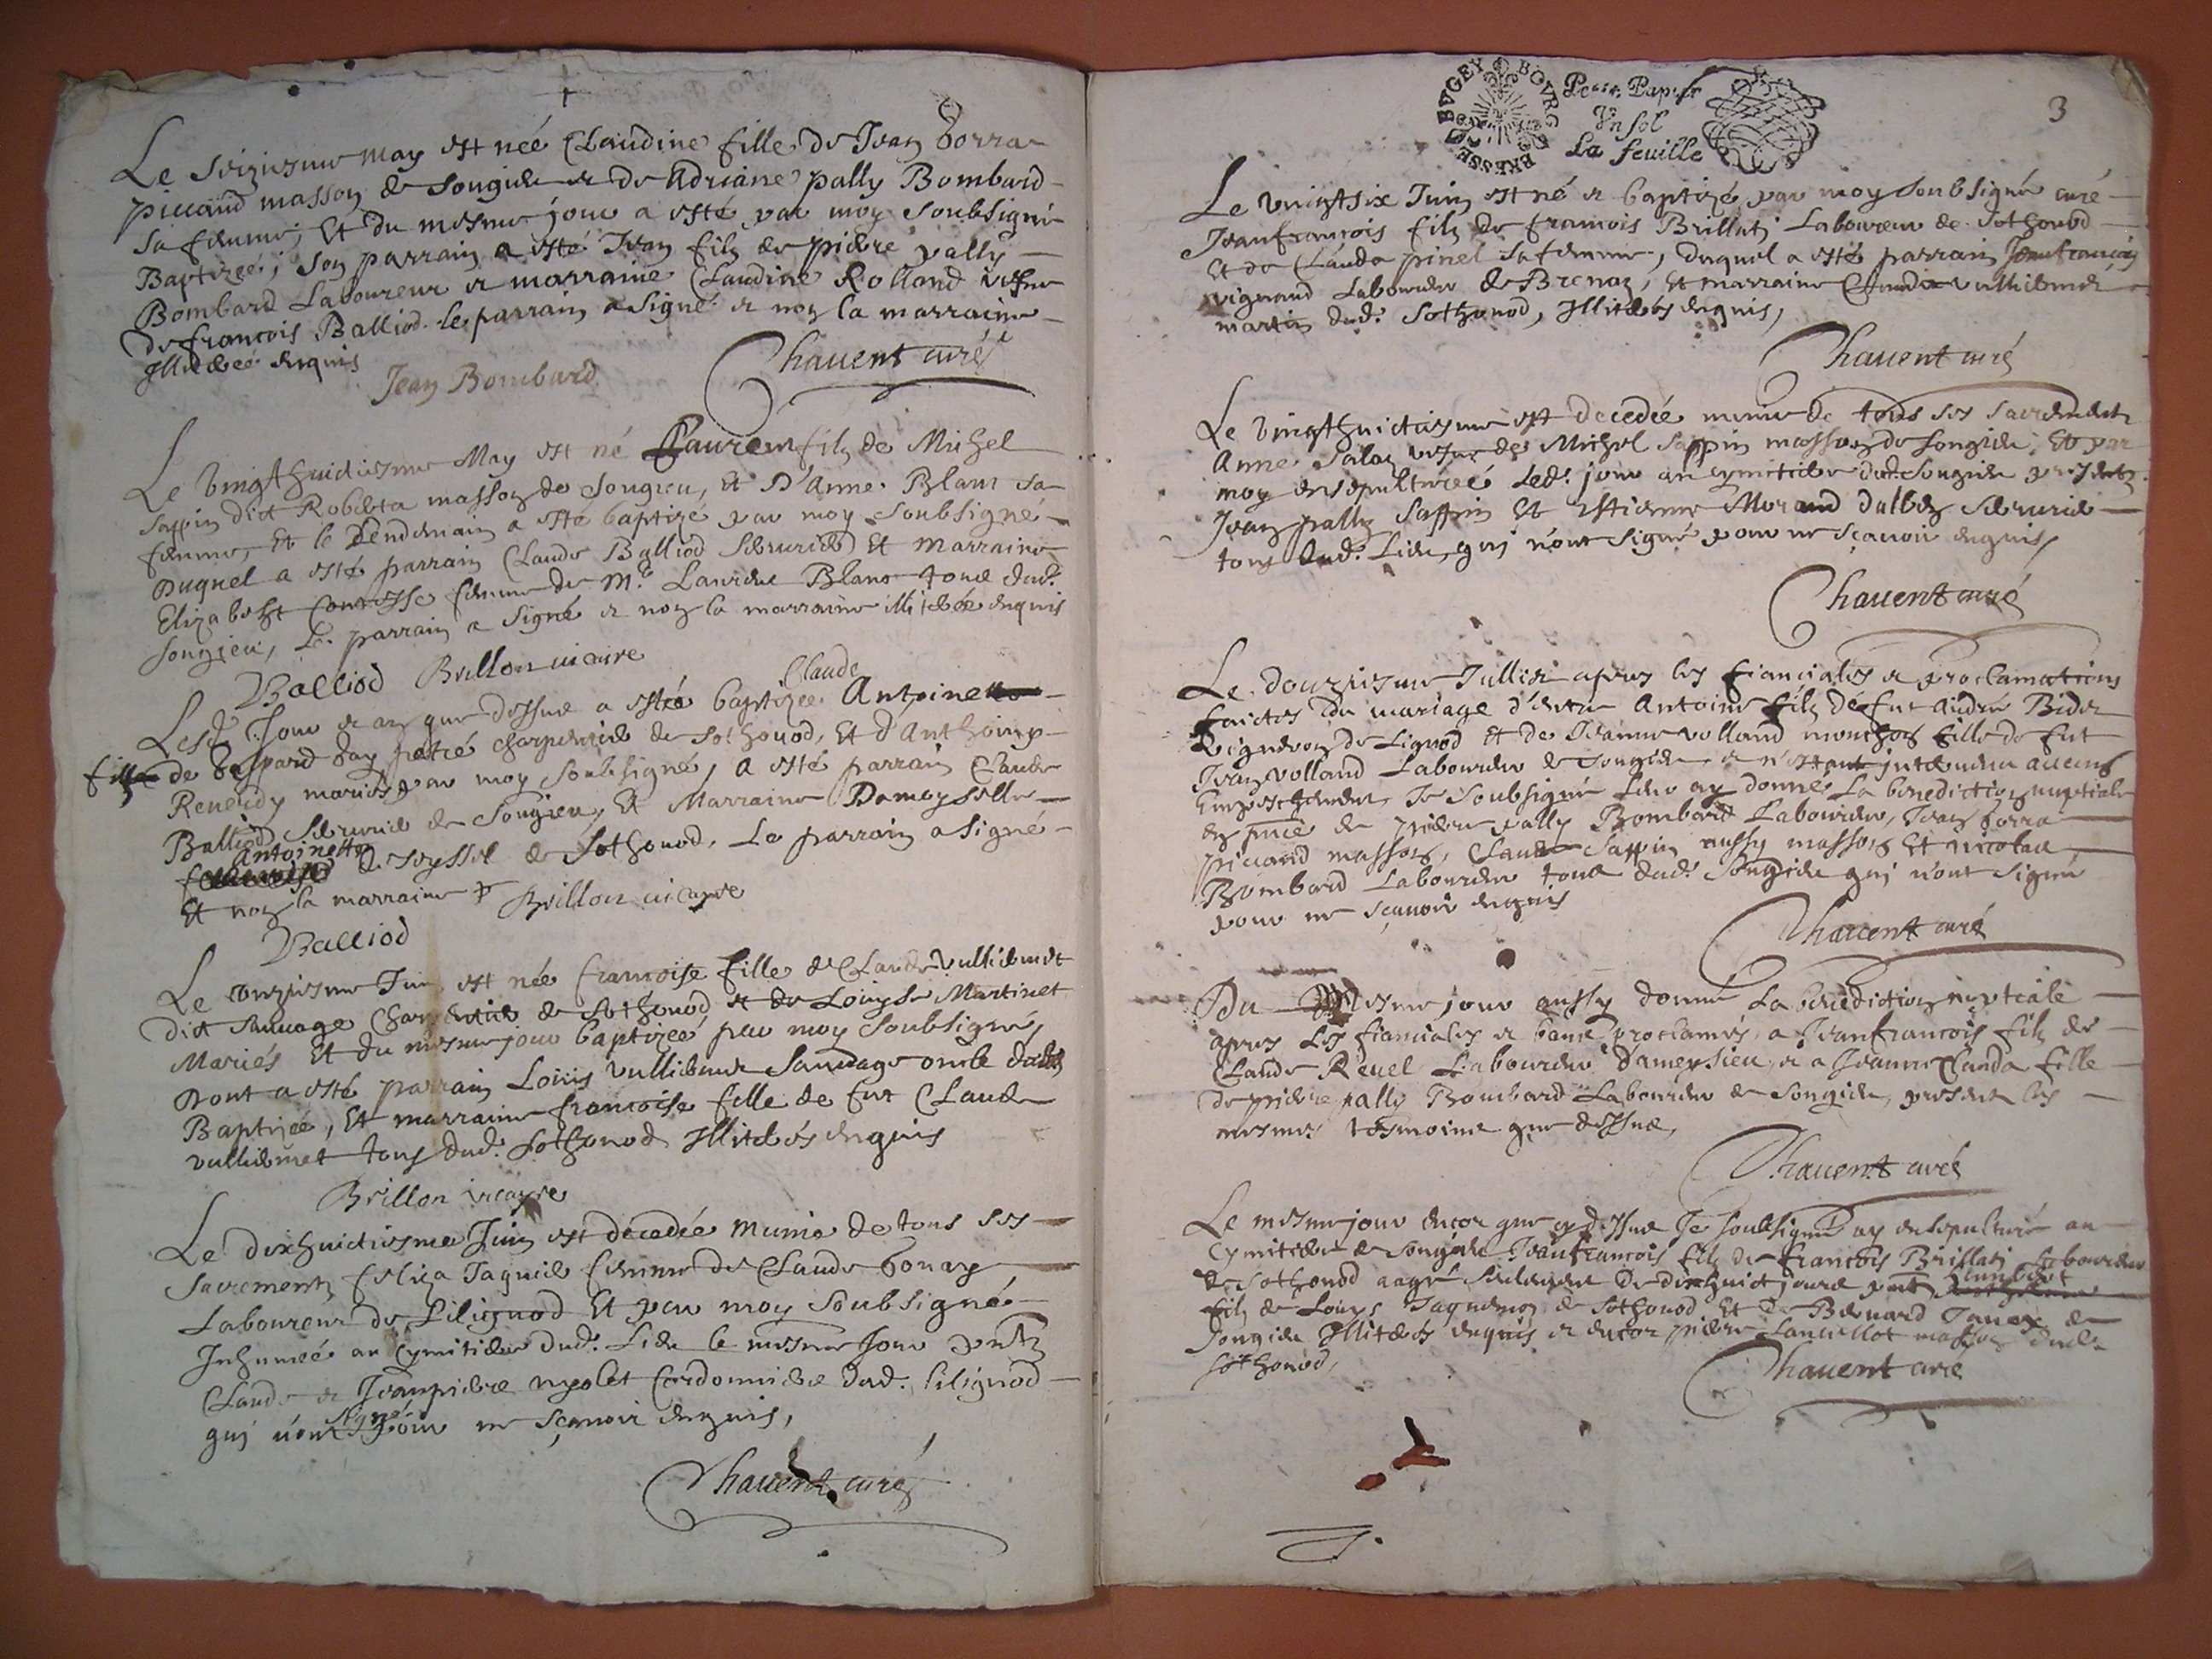 Le seiziesme may est née Claudine fille de Jean Borra
piccand masson de Songieu et de Adriane pally Bombard
sa femme, Et du mesme jour a esté par moy soubsigné
Baptizeé, son parrain a esté Jean filz de pierre pally
Bombard Laboureur et marraine Claudine Rolland vefve
de francois Balliod. le parrain a signé et non la marraine
Illitereé enquis
Jean Bombard
Chauent curé
Le vingthuictiesme May est né Laurent filz de Michel
sappin dict Roberta masson de Songieu, Et D'Anne Blanc sa
femme, Et le Lendemain a esté baptizé par moy soubsigné
Duquel a esté parrain Claude Balliod serrurier Et marraine
Elizabeht femme de Mre. Laurens Blanc tous dud.
Songieu, Le parrain a signé et non la marraine illiterée enquis
Balliod Brillon vicaire
Claude
Lesd. Jour et an que dessus a esté baptizee Antoine
fille de Gaspard charpentier de Sothonod, Et d'Anthoine
Reveidy mariés par moy soubsigné, a esté parrain Claude
Balliod serrurier de Songieu, Et Marraine Damoyselle
Antoinette
de Seyssel de Sothonod. Le parrain a signé
Et non la marraine Brillon vicaire
Balliod
Le onziesme Juin est née francoise fille de Claude vulliemet
dict sauuage charpentier de Sothonod et de Louyse Martinet
Mariés Et du mesme jour baptizeé par moy soubsigné,
Dont a esté parrain Louis vulliemet sauuage oncle de lad.
Baptizeé, Et marraine francoise fille de fut Claude
vulliemet tous dud. Sothonod Illiterés enquis
Brillon vicayre
Le dixhuictiesme Juin est decedée munie de tous ses
sacrements Jaquier femme de Claude Gonay
Laboureur de Lilignod Et par moy soubsigné
Inhumeé au cymitiere dud. Lieu le mesme Jour pntz
Claude et Jeanpierre myolet cordonniers dud. lilignod
signé
qui n'ont pour ne sçauoir enquis,
Chauent curé
BRESSE BVGEY BOVRG
Pour Papier
Vn sol
La feuille
3
Le vingtsix Juin est né et baptizé par moy soubsigné curé
Jeanfrançois filz de francois Brillati Laboureur de Sothonod
Et de Claude pinel sa femme, duquel a esté parrain Jeanfrançois
vignand Laboureur de Brenaz, Et marraine Claudine vulliemet
martin dud. Sothonod, Illiterés enquis,
Chauent curé
Le vingthuictiesme est decedée munie de tous ses sacrements
Anne vefve de Michel Sappin masson de Songieu, Et par
moy ensepultureé led. jour au cymitiere dud. Songieu presents
Jean pally Sappin Et Estienne Morand serrurier
tous dud. Lieu, qui n'ont signé pour ne sçauoir enquis,
Chauent curé
Le douziesme Juillet apres les fianciales et proclamations
faictes du mariage d'entre Antoine filz de fut André Bider
vigneron de Lignod Et de Jeanne volland fille de fut
Jean volland Laboureur de Songieu et n'estant interuenu aucung
Empeschement, Je soubsigné leur ay donné La benediction nuptiale
en pnce de pierre pally Bombard Laboureur, Jean borra
piccand masson, Claude Sappin aussy masson Et nicolas
Bombard Laboureur tous dud. Songieu qui n'ont signé
pour ne sçauoir enquis
Chauent curé
Du Mesme jour aussy donné La benediction nuptiale
apres Les fianciales et bans proclamés, a Jeanfrancois filz de
Claude Reuel Laboureur Dameysieu, et a Jeanne Clauda fille
de pierre pally Bombard Laboureur de Songieu, presents les
mesmes tesmoins que dessus,
Chauent curé
Le mesme jour encor que cy dessus Je soubsigné ay ensepulturé au
cymitiere de Songieu Jeanfrancois filz de francois Brillati Laboureur
de Sothonod aagé seulement de dixhuict jours pntz
filz de Louys de Sothonod Et de Bernard de
Songieu Illiterés enquis et encor pierre Lancillot masson dud.
Sothonod,
Chauent curé